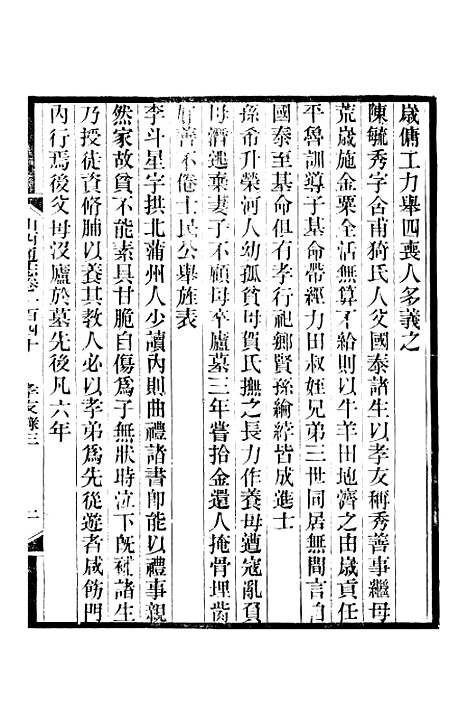 歲傭工力舉四喪人多義之
陳毓秀字含甫猗氏人父國泰諸生以孝友稱秀善事繼母
荒歲施金粟全活無算不給則以牛羊田地濟之由歲貢任
平魯訓導子基命帶經力田叔姪兄弟三世同居無間言自
國泰至基命但有孝行祀鄉賢孫綸綍皆成進士
孫希升榮河人幼孤貧母賀氏撫之長力作養母遭寇亂負
母潛逃棄妻子不顧母卒廬墓三年嘗拾金還人掩骨埋胔
好善不倦士民公舉旌表
李斗星字拱北蒲州人少讀內則曲禮諸書即能以禮事親
然家故貧不能素具甘脆自傷爲子無狀時泣下旣補諸生
乃授徒資脩脯以養其教人必以孝弟爲先從遊者咸飭門
內行焉後父母沒廬於墓先後凡六年
山西通志卷一百四十 孝友錄三 二